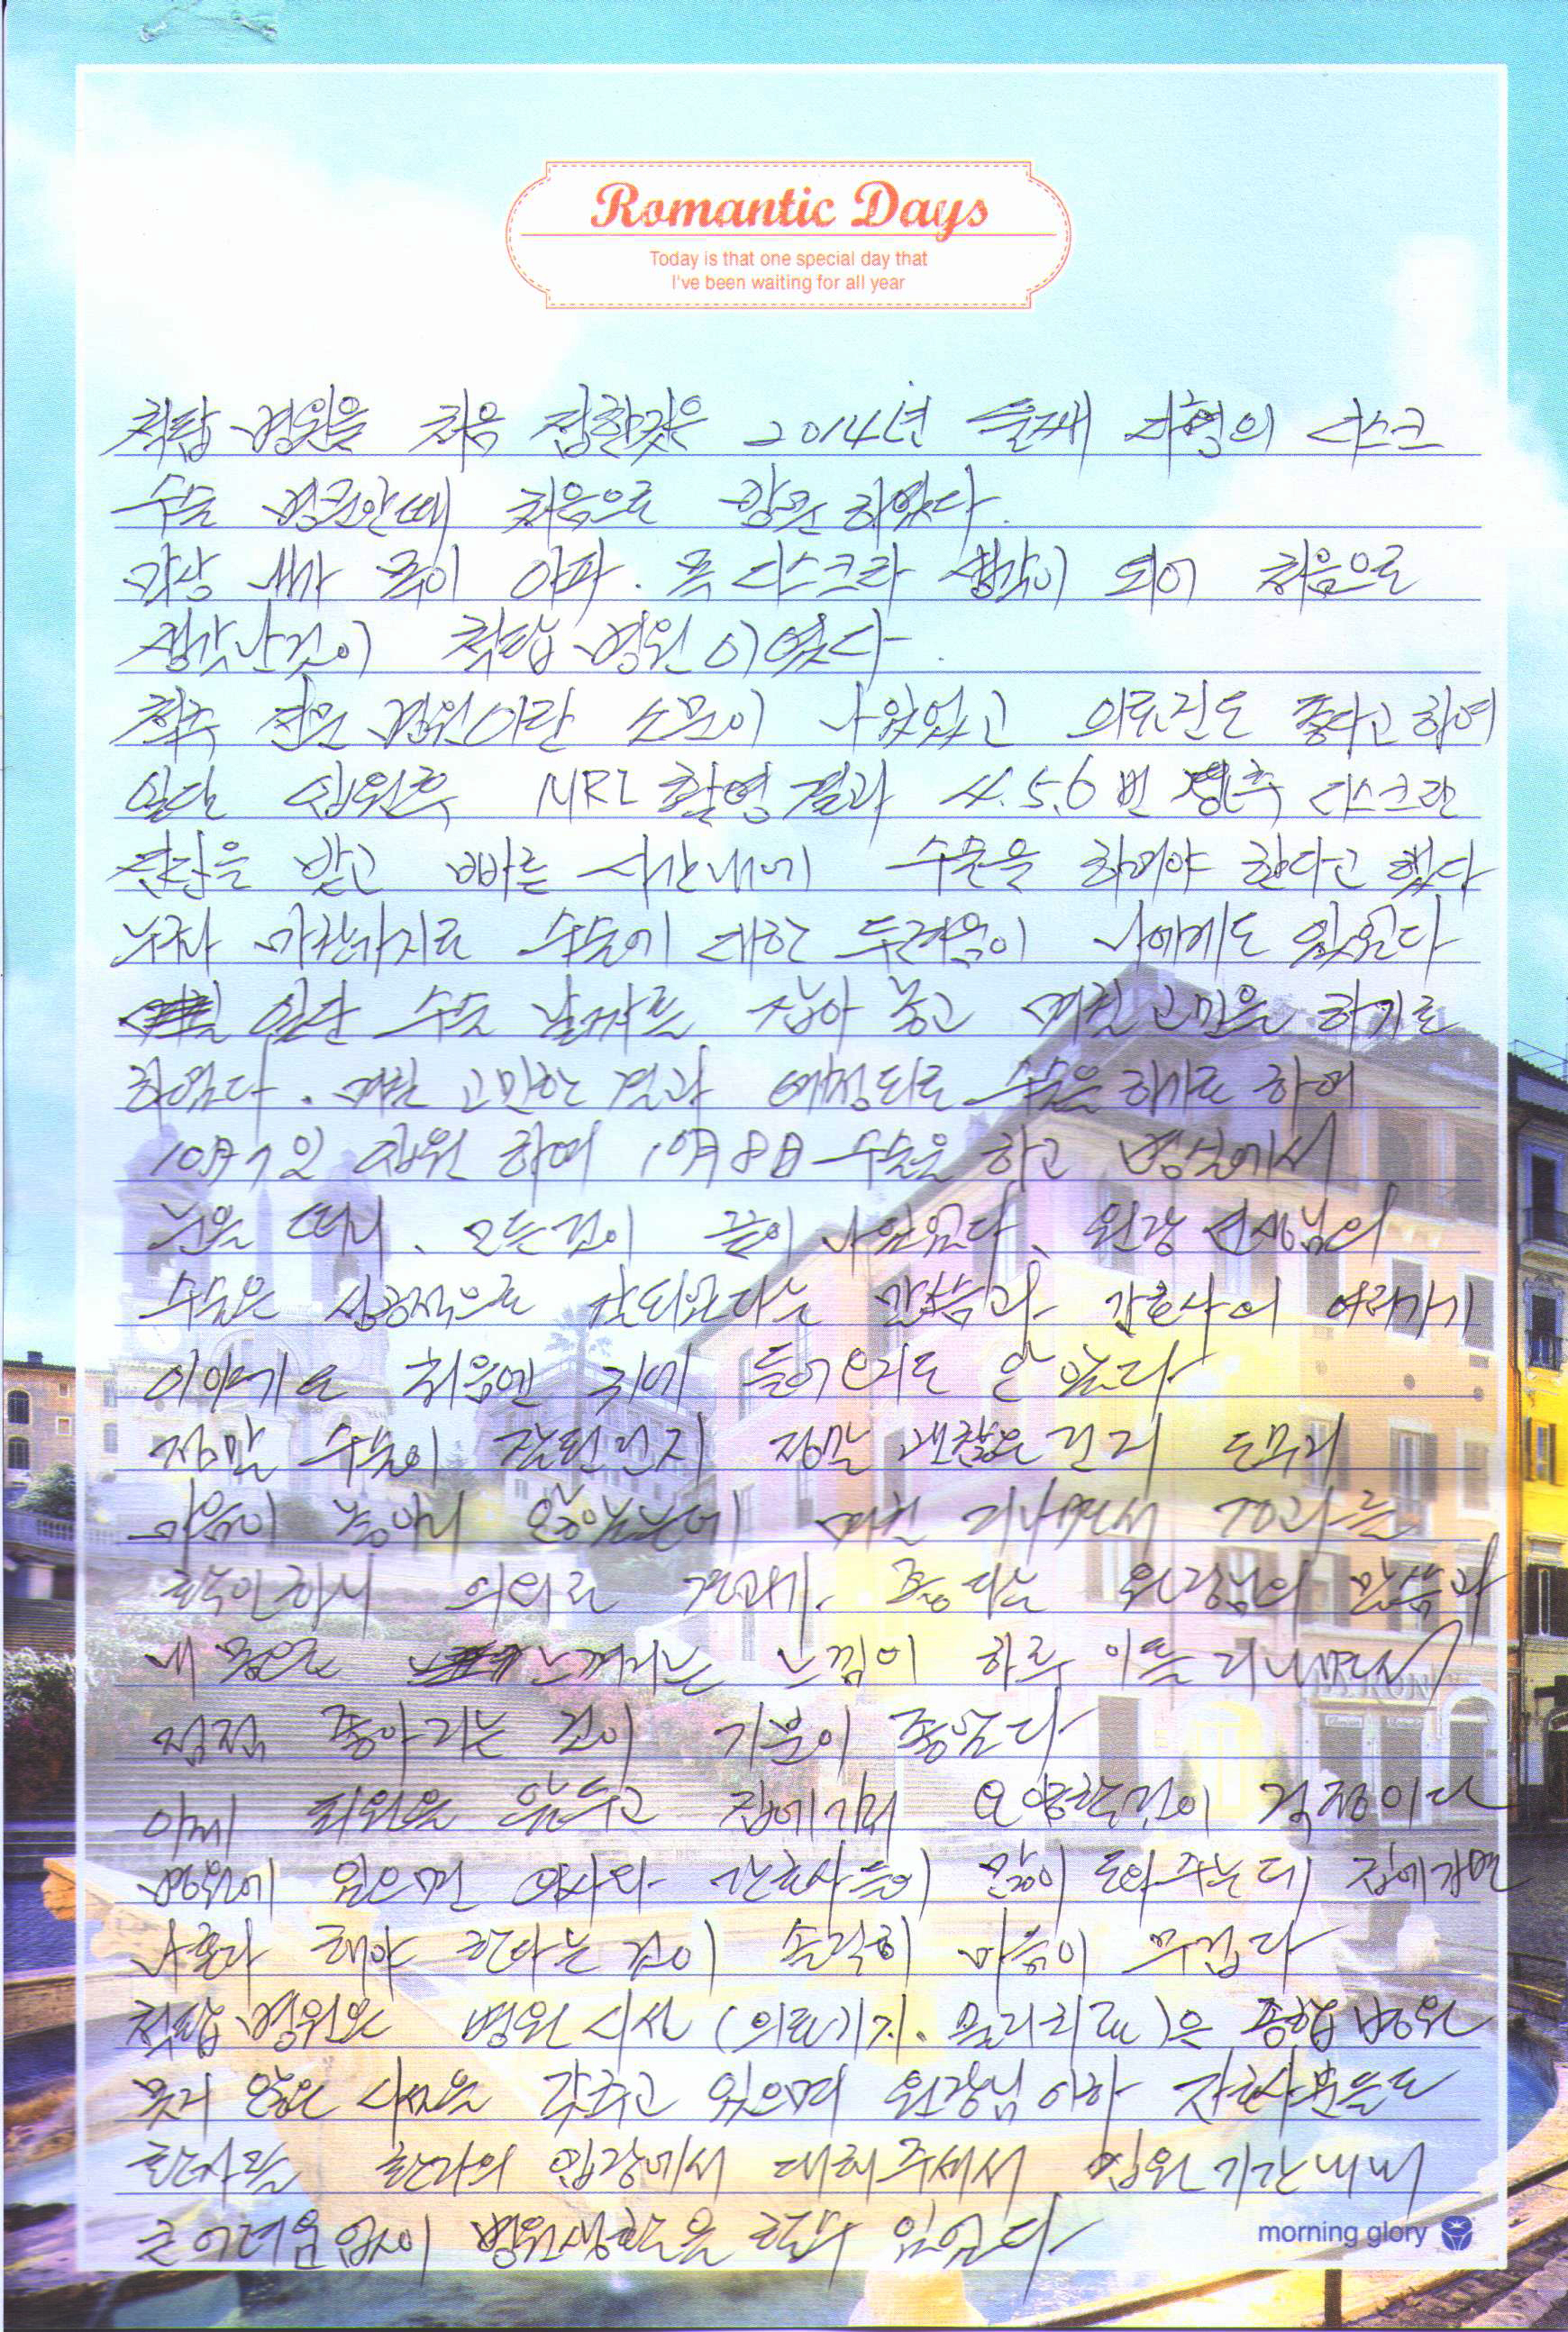 Romantic Days
Today is that one special day that
I've been waiting for all year
척탑 병원을 처음 접한것은 2014년 둘째 처형의 디스크
수술 병문안때 처음으로 방문 하였다.
막상 내가 목이 아파. 목 디스크라 생각이 되어 처음으로
생각난것이 척탑 병원이였다.
척추 전문 병원이란 소문이 나 있었고 의료진도 좋다고 하여
일단 입원후 MRI 촬영 결과 4.5.6번 경추 디스크란
진단을 받고 빠른 시간내에 수술을 하여야 한다고 했다
누구나 마찬가지로 수술에 대한 두려움이 나에게도 있었다
일단 수술 날짜를 잡아 놓고 며칠 고민을 하기로
하였다. 며칠 고민한 결과 예정되로 수술을 하기로 하여
10月7일 입원 하여 10月8日 수술을 하고 병실에서
눈을 떠니. 모든것이 끝이 나 있었다. 원장 선생님의
수술은 성공적으로 잘되었다는 말씀과 간호사의 여러가지
이야기도 처음엔 귀에 들어오지도 안 았다
정말 수술이 잘된건지 정말 괜찮은건지 도무지
마음이 놓아지 않았는데 며칠 지나면서 경과를
확인하니 의외로 경과가 좋다는 원장님의 말씀과
내 몸으로 느껴지는 느낌이 하루 이틀 지나면서
점점 좋아지는 것이 기분이 좋았다
이제 퇴원을 앞두고 집에가서 요양할것이 걱정이다
병원에 있으면 의사와 간호사들이 많이 도와주는데 집에가면
나혼자 해야 한다는 것이 솔직히 마음이 무겁다
척탑 병원은 병원 시설(의료기기. 물리치료)은 종합병원
못지 않은 시설을 갖추고 있으며 원장님 이하 간호사분들도
환자를 환자의 입장에서 대해 주셔서 입원 기간내내
큰 어려움 없이 병원생활을 할수 있었다
morning glory